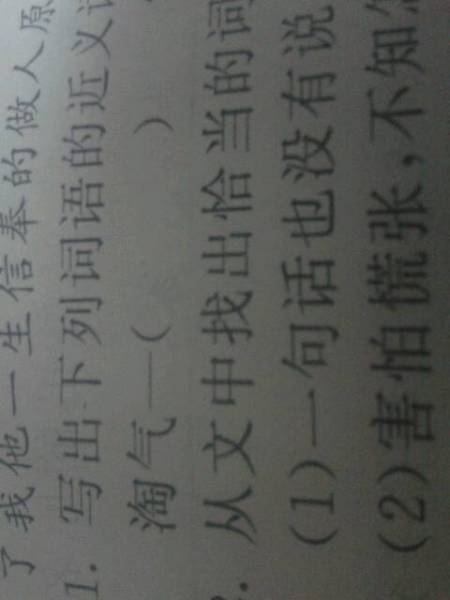 了我他一生信奉的做人原
1. 写出下列词语的近义
淘气—( )
. 从文中找出恰当的词
(1)一句话也没有说
(2)害怕慌张,不知